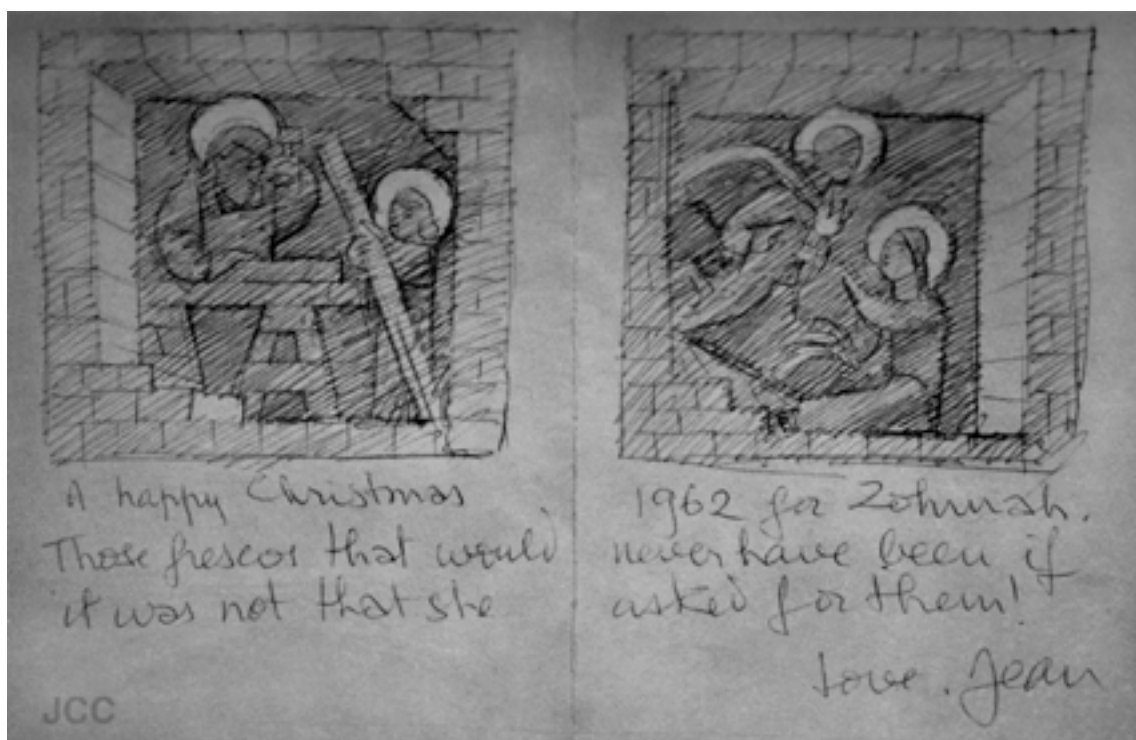 A happy Christmas 1962 for Zohmah.
Those frescos that would never have been if
it was not that she asked for them!
Love. Jean
JCC